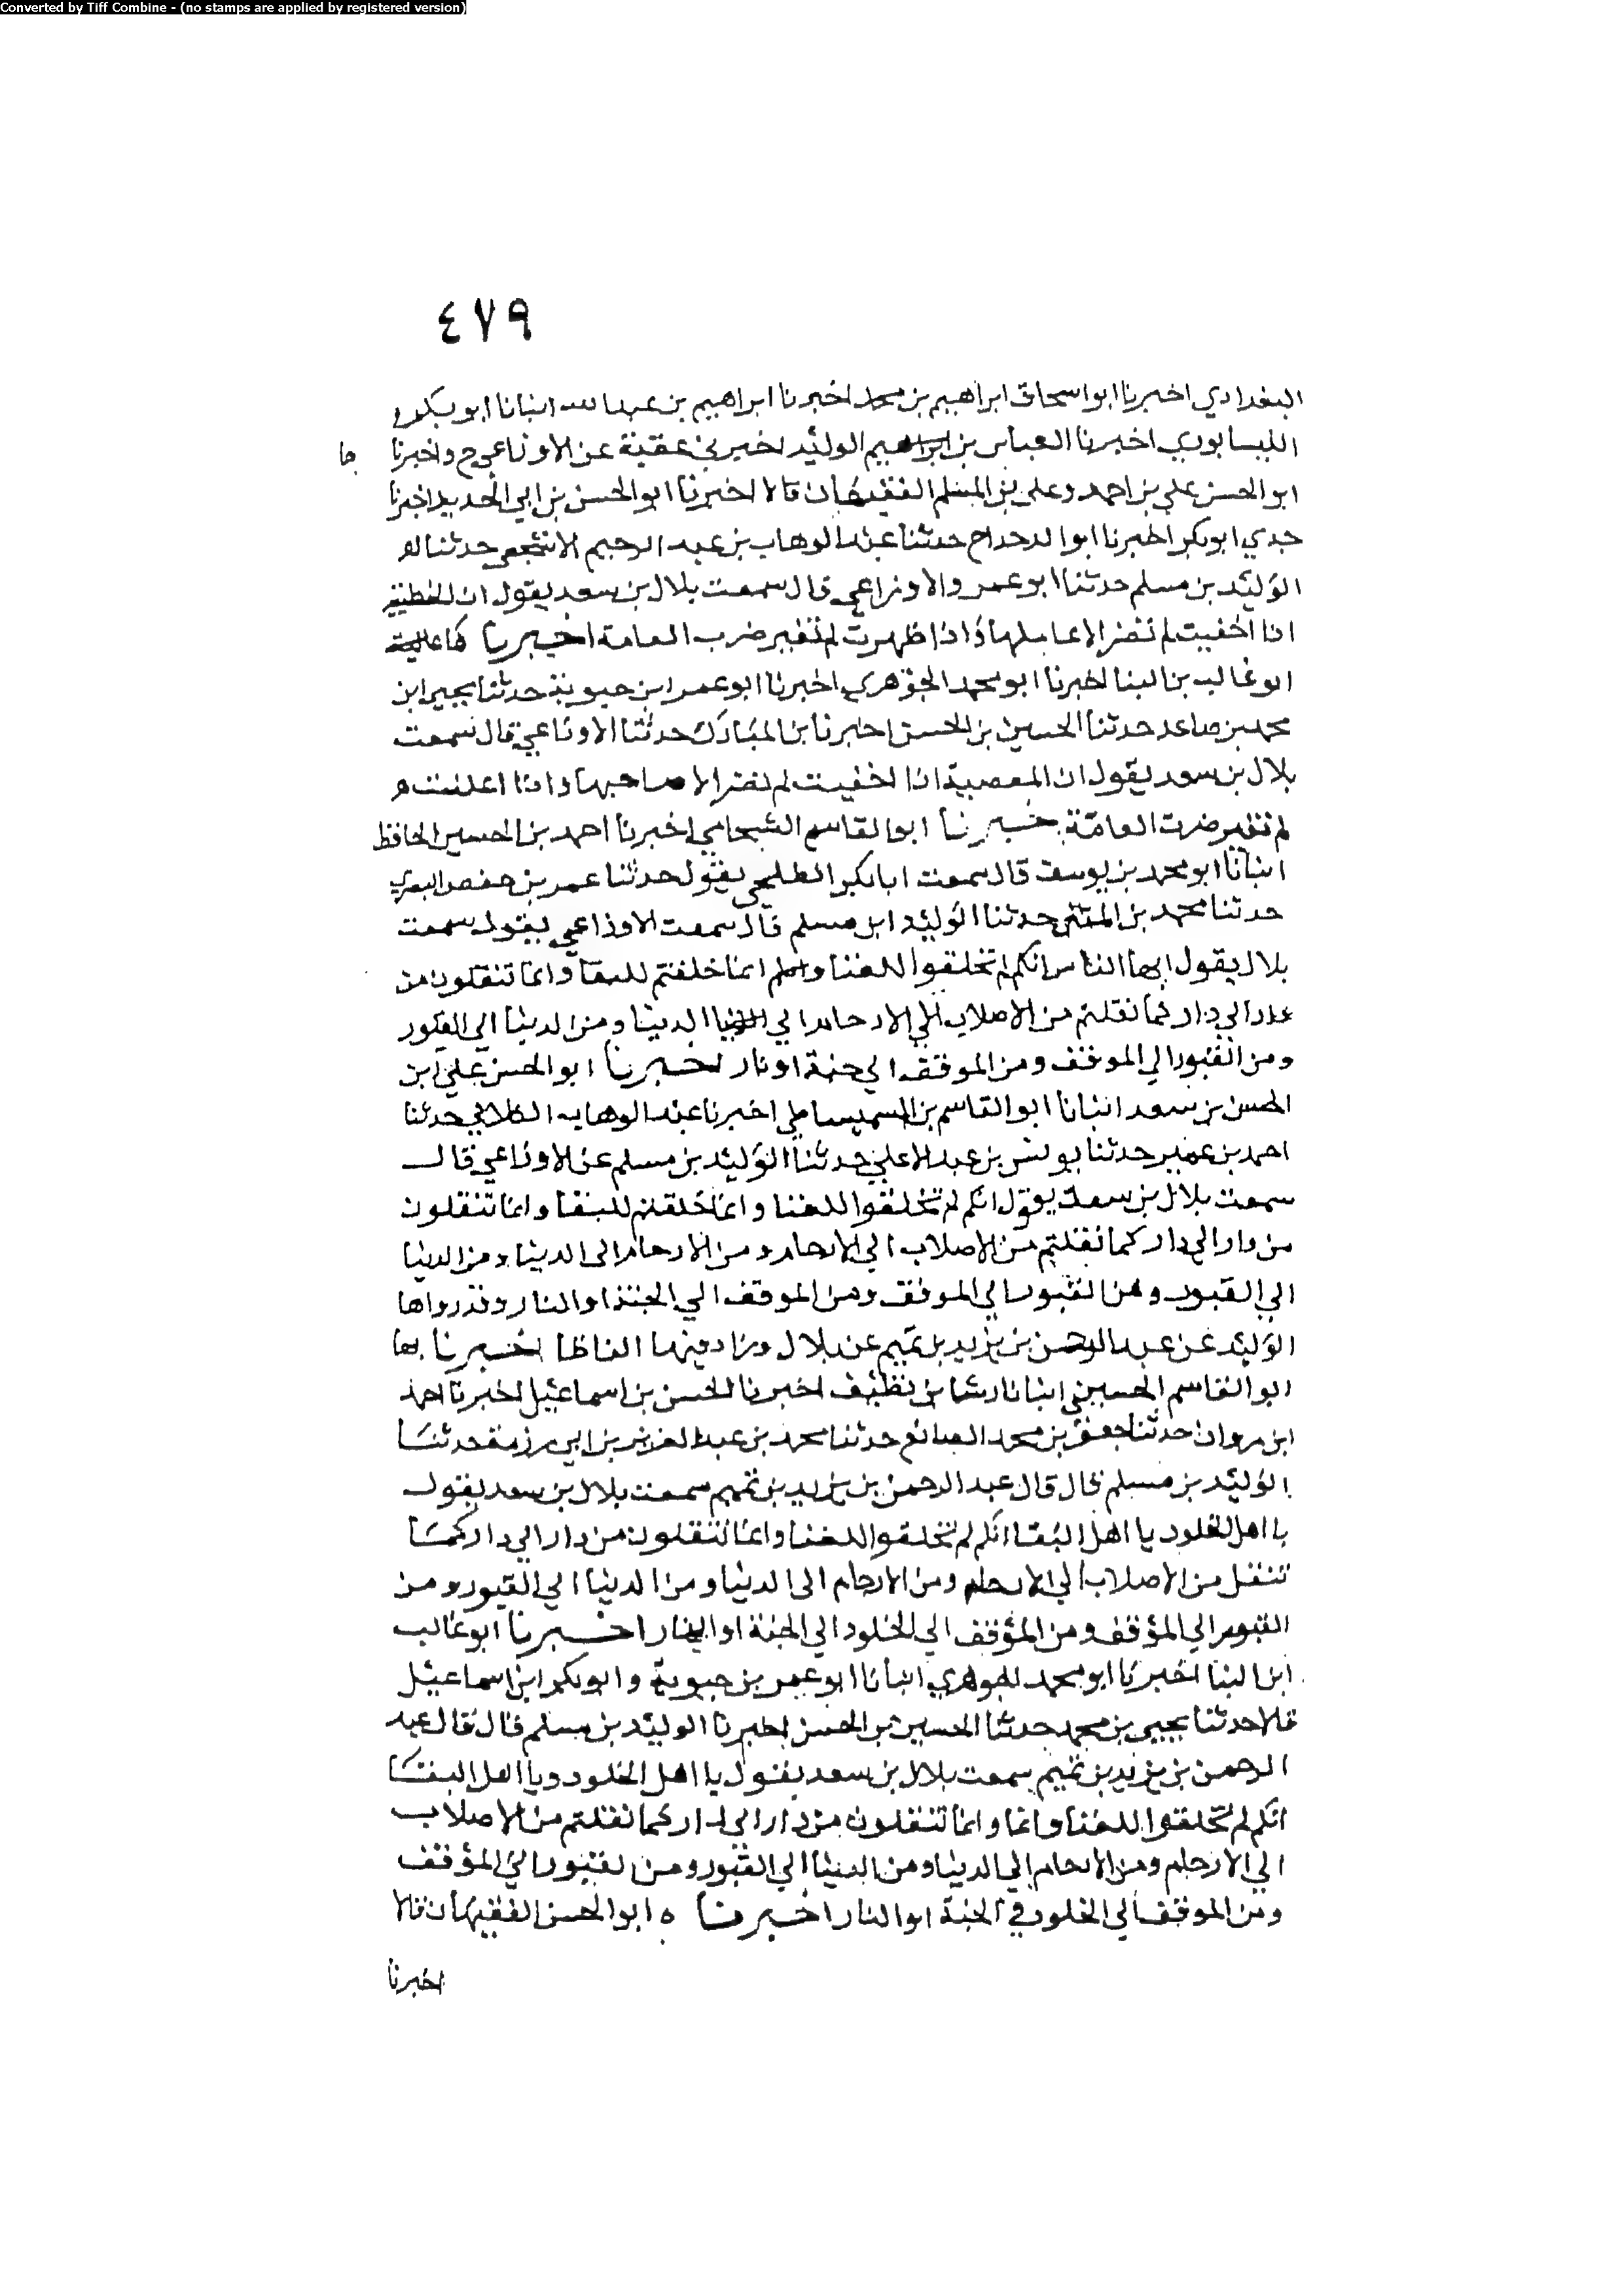 Converted by Tiff Combine - (no stamps are applied by registered version)
٤٧٩
البغدادي اخبرنا ابو اسحاق ابراهيم بن محمد اخبرنا ابراهيم بن عبد الله انبانا ابو بكر
النيسابوري اخبرنا العباس بن الوليد اخبرني عقبة عن الاوزاعي ح واخبرنا
ابو الحسن علي بن احمد وعلي بن المسلم الفقيهان قالا اخبرنا ابو الحسن بن ابي الحديد اخبرنا
جدي ابو بكر اخبرنا ابو الدحداح حدثنا عبد الوهاب بن عبد الرحيم الاشجعي حدثنا
الوليد بن مسلم حدثنا ابو عمرو الاوزاعي قال سمعت بلال بن سعد يقول ان الخطيئة
اذا اخفيت لم تضر الا عاملها واذا ظهرت لم تغير ضرب العامة اخبرنا
ابو غالب بن البنا اخبرنا ابو محمد الجوهري اخبرنا ابو عمر ابن حيوية حدثنا يحيى ابن
محمد بن صاعد حدثنا الحسين بن الحسن اخبرنا بن المبارك حدثنا الاوزاعي قال سمعت
بلال بن سعد يقول ان المعصية اذا اخفيت لم تضر الا صاحبها واذا اعلنت و
لم تغير ضرت العامة خبرنا ابو القاسم الشحامي اخبرنا احمد بن الحسين الحافظ
انبانا ابو محمد بن يوسف قال سمعت ابا بكر الطلحي يقول حدثنا عمر بن حفص البصري
حدثنا محمد بن المثنى حدثنا الوليد ابن مسلم قال سمعت الاوزاعي يقول سمعت
بلال يقول ايها الناس انكم لم تخلقوا للفنا وانما خلقتم للبقا وانما تنقلون من
دار الي دار كما نقلتم من الاصلاب الي الارحام الي الدينا ومن الدنيا الي القبور
ومن القبور الي الموقف ومن الموقف الي جنة او نار اخبرنا ابو الحسن علي ابن
الحسن بن سعد انبانا ابو القاسم بن السميساطي اخبرنا عبد الوهاب الكلابي حدثنا
احمد بن عمير حدثنا يونس بن عبد الاعلي حدثنا الوليد بن مسلم عن الاوزاعي قال
سمعت بلال بن سعد يقول انكم لم تخلقوا للفنا وانما خلقتم للبقا وانما تنقلون
من دار الي دار كما نقلتم من الاصلاب الي الارحام ومن الارحام الى الدينا ومن الدنيا
الي القبور ومن القبور الي الموقف ومن الموقف الي الجنة او النار وقد رواها
الوليد عن عبد الرحمن بن يزيد بن تميم عن بلال وزاد فيها الفاظا اخبرنا بها
ابو القاسم الحسيني انبانا رشا بن نظيف اخبرنا الحسن بن اسماعيل اخبرنا احمد
ابن مروان حدثنا جعفر بن محمد الصائغ حدثنا محمد بن عبد العزيز بن ابي رزمة حدثنا
الوليد بن مسلم قال قال عبد الرحمن بن يزيد بن تميم سمعت بلال بن سعد يقول
يا اهل الخلود يا اهل البقا انكم لم تخلقوا للفنا وانما تنقلون من دار الي دار كما
تنقل من الاصلاب الي الارحام ومن الارحام الى الدنيا ومن الدنيا الي القبور ومن
القبور الي الموقف ومن الموقف الي الخلود الي الجنة او النار اخبرنا ابو غالب
ابن البنا اخبرنا ابو محمد الجوهري انبانا ابو عمر بن حيوية وابو بكر ابن اسماعيل
قالا حدثنا يحيي بن محمد حدثنا الحسين بن الحسن اخبرنا الوليد بن مسلم قال قال عبد
الرحمن بن يزيد بن تميم سمعت بلال بن سعد يقول يا اهل الخلود ويا اهل البقا
انكم لم تخلقوا للفنا وانما وانما تنقلون من دار الي دار كما نقلتم من الاصلاب
الي الارحام ومن الارحام الي الدنيا ومن الدنيا الي القبور ومن القبور الي الموقف
ومن الموقف الي الخلود في الجنة او النار اخبرنا ابو الحسن الفقيهان قالا
اخبرنا